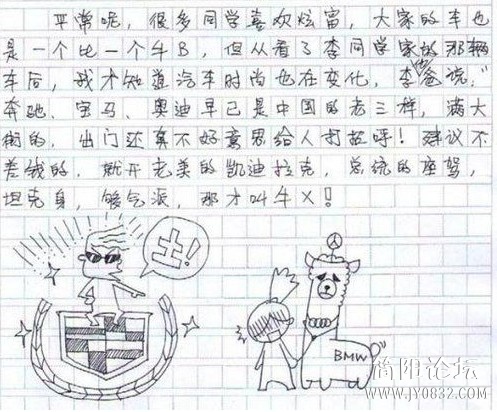 平常呢，很多同学喜欢炫富，大家的车也
是一个比一个牛B，但从看了李同学家的那辆
车后，我才知道汽车时尚也在变化，李爸说："
奔驰、宝马、奥迪早已是中国的老三样，满大
街的，出门还真不好意思给人打招呼！建议不
差钱的，就开老美的凯迪拉克，总统的座驾，
坦克身，够气派，那才叫牛X！
土！
BMW
简阳论坛
www.JY0832.com